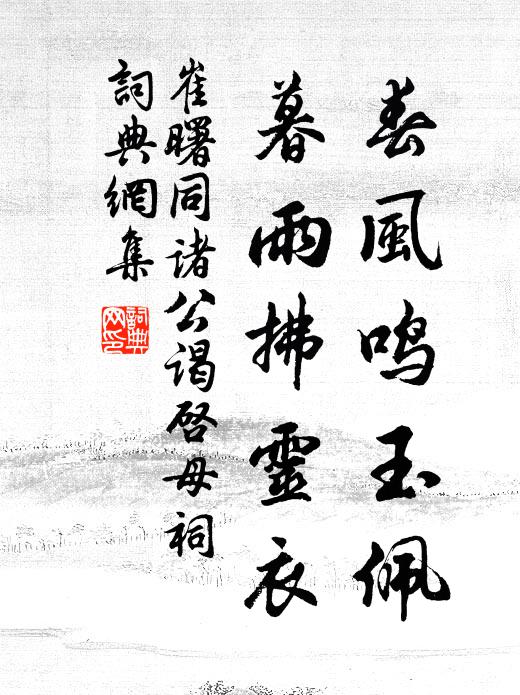 春風鳴玉佩
暮雨拂靈衣
崔曙同诸公谒启母祠
詞典網集
詞典
网印